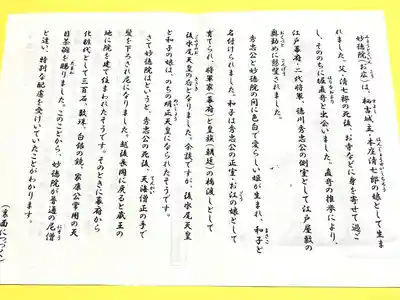 妙徳院（お庄）は、栃吉城主・本庄清七郎の娘として生ま
れました。父・清七郎の死後、お寺などに身を寄せて過ご
し、そののちに堀直奇と出会いました。直奇の推挙により、
江戸幕府・二代将軍、徳川秀忠公の側室として江戸屋敷の
奥勤めに懇望されました。
秀忠公と妙徳院の間に色白で愛らしい姫が生まれ、和子と
名付けられました。和子は秀忠公の正室・お江の娘として
育てられ、将軍家（幕府）と皇族（朝廷）の橋渡しとして
後水尾天皇の后となりました。余談ですが、後水尾天皇
と和子の娘は、のちの明正天皇になられたそうです。
さて妙徳院はというと、秀忠公の死後、天海僧正の手で
髪を下ろされ尼になりました。越後長岡に戻ると蔵王の
地に院を建て住まわれたそうです。そのときに幕府から
化粧代として三百石、数珠、白銀の鏡、家康公常用の天
目茶碗を賜りました。このことから、妙徳院が普通の尼僧
と違い、特別な配慮を受けていたことがわかります。
（裏面につづく）